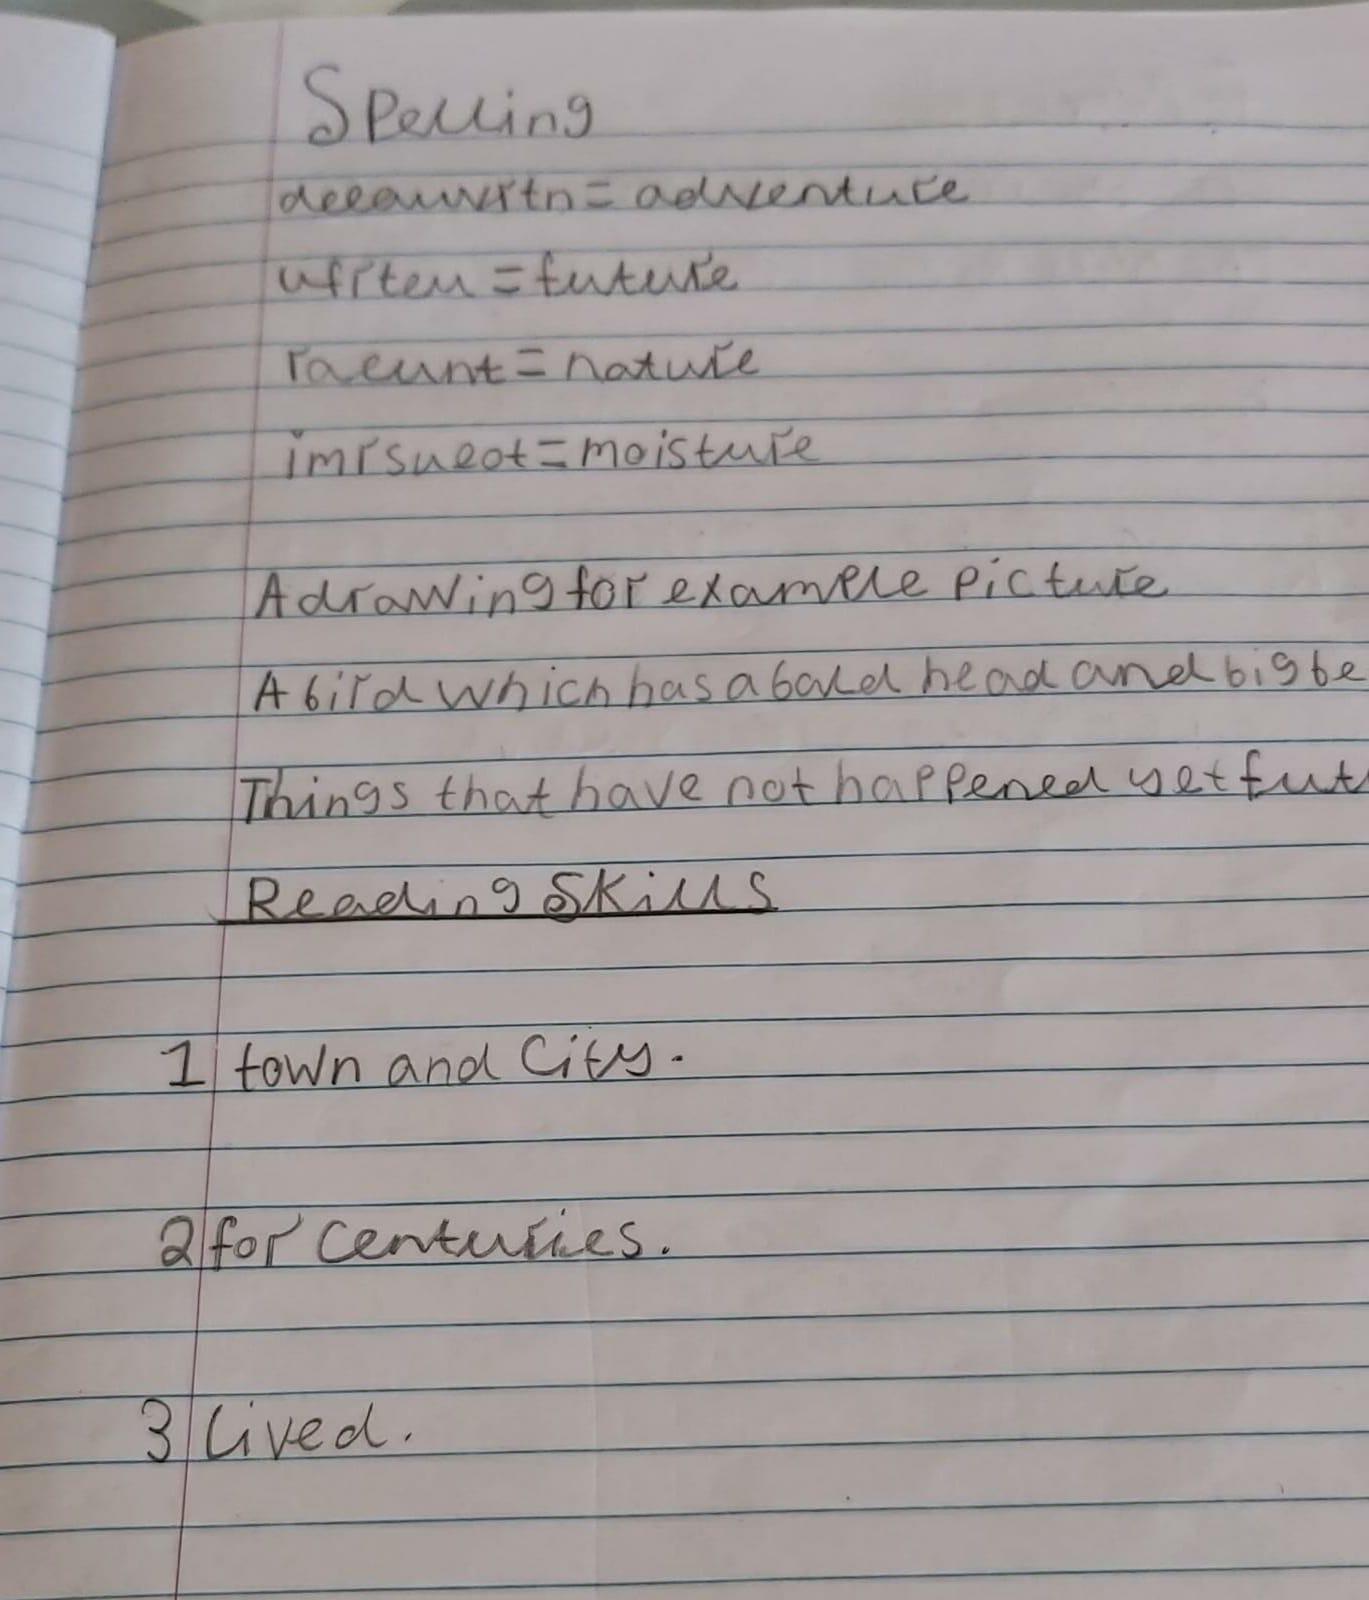 Spelling
deeauvrtn = adventure
ufrteu = future
raeunt = nature
imrsueot = moisture
A drawing for example picture
A bird which has a bald head and big be
Things that have not happened yet fut
Reading Skills
1 town and City.
2 for centuries.
3 lived.